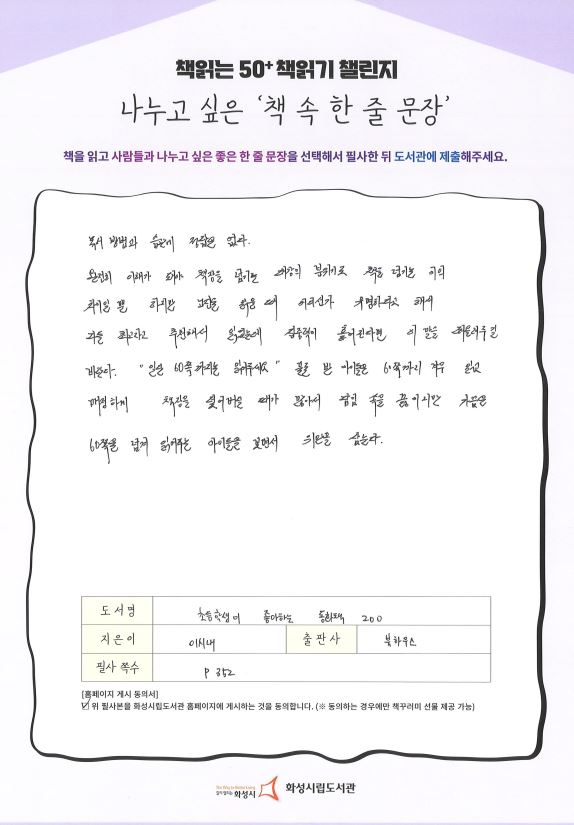 책읽는 50+ 책읽기 챌린지
나누고 싶은 ‘책 속 한 줄 문장’
책을 읽고 사람들과 나누고 싶은 좋은 한 줄 문장을 선택해서 필사한 뒤 도서관에 제출해주세요.
독서 방법과 습관에 정답은 없다.
완전히 이해가 돼야 책장을 넘기는 책을 넘기는 이의
차이일 뿐 하지만 고전을 읽을 때
추천해서 읽었는데 집중력이 흩어진다면 이 말을 떠올려주길
바란다. "일단 60쪽까지는 읽어주세요" 아이들은 60쪽까지 겨우 읽고
매정하게 책장을 덮어버릴 때가 많아서 가끔은
60쪽을 넘겨 읽어주는 아이들을 보면서 위안을 삼는다.
도서명 초등학생이 좋아하는 동화책 200
지은이 이시내 출판사 북하우스
필사 쪽수 P 352
[홈페이지 게시 동의서]
위 필사본을 화성시립도서관 홈페이지에 게시하는 것을 동의합니다. (※ 동의하는 경우에만 책꾸러미 선물 제공 가능)
화성시 화성시립도서관